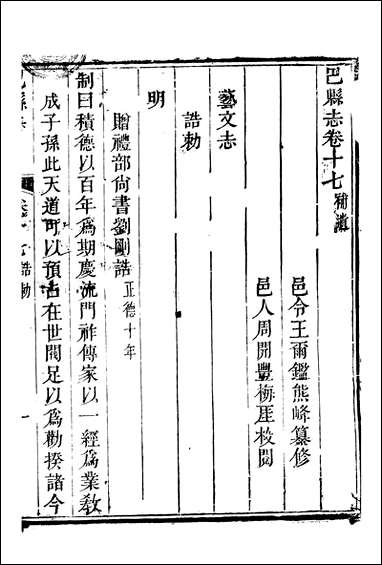 邑縣志卷十七補遺
邑令王爾鑑熊峰纂修
邑人周開豐梅厓校閱
藝文志
誥勅
明
贈禮部尚書劉剛誥正德十年
制曰積德以百年爲期慶流門祚傳家以一經爲業敎
成子孫此天道可以預占在世閥足以爲勸揆諸今
誥勅
一